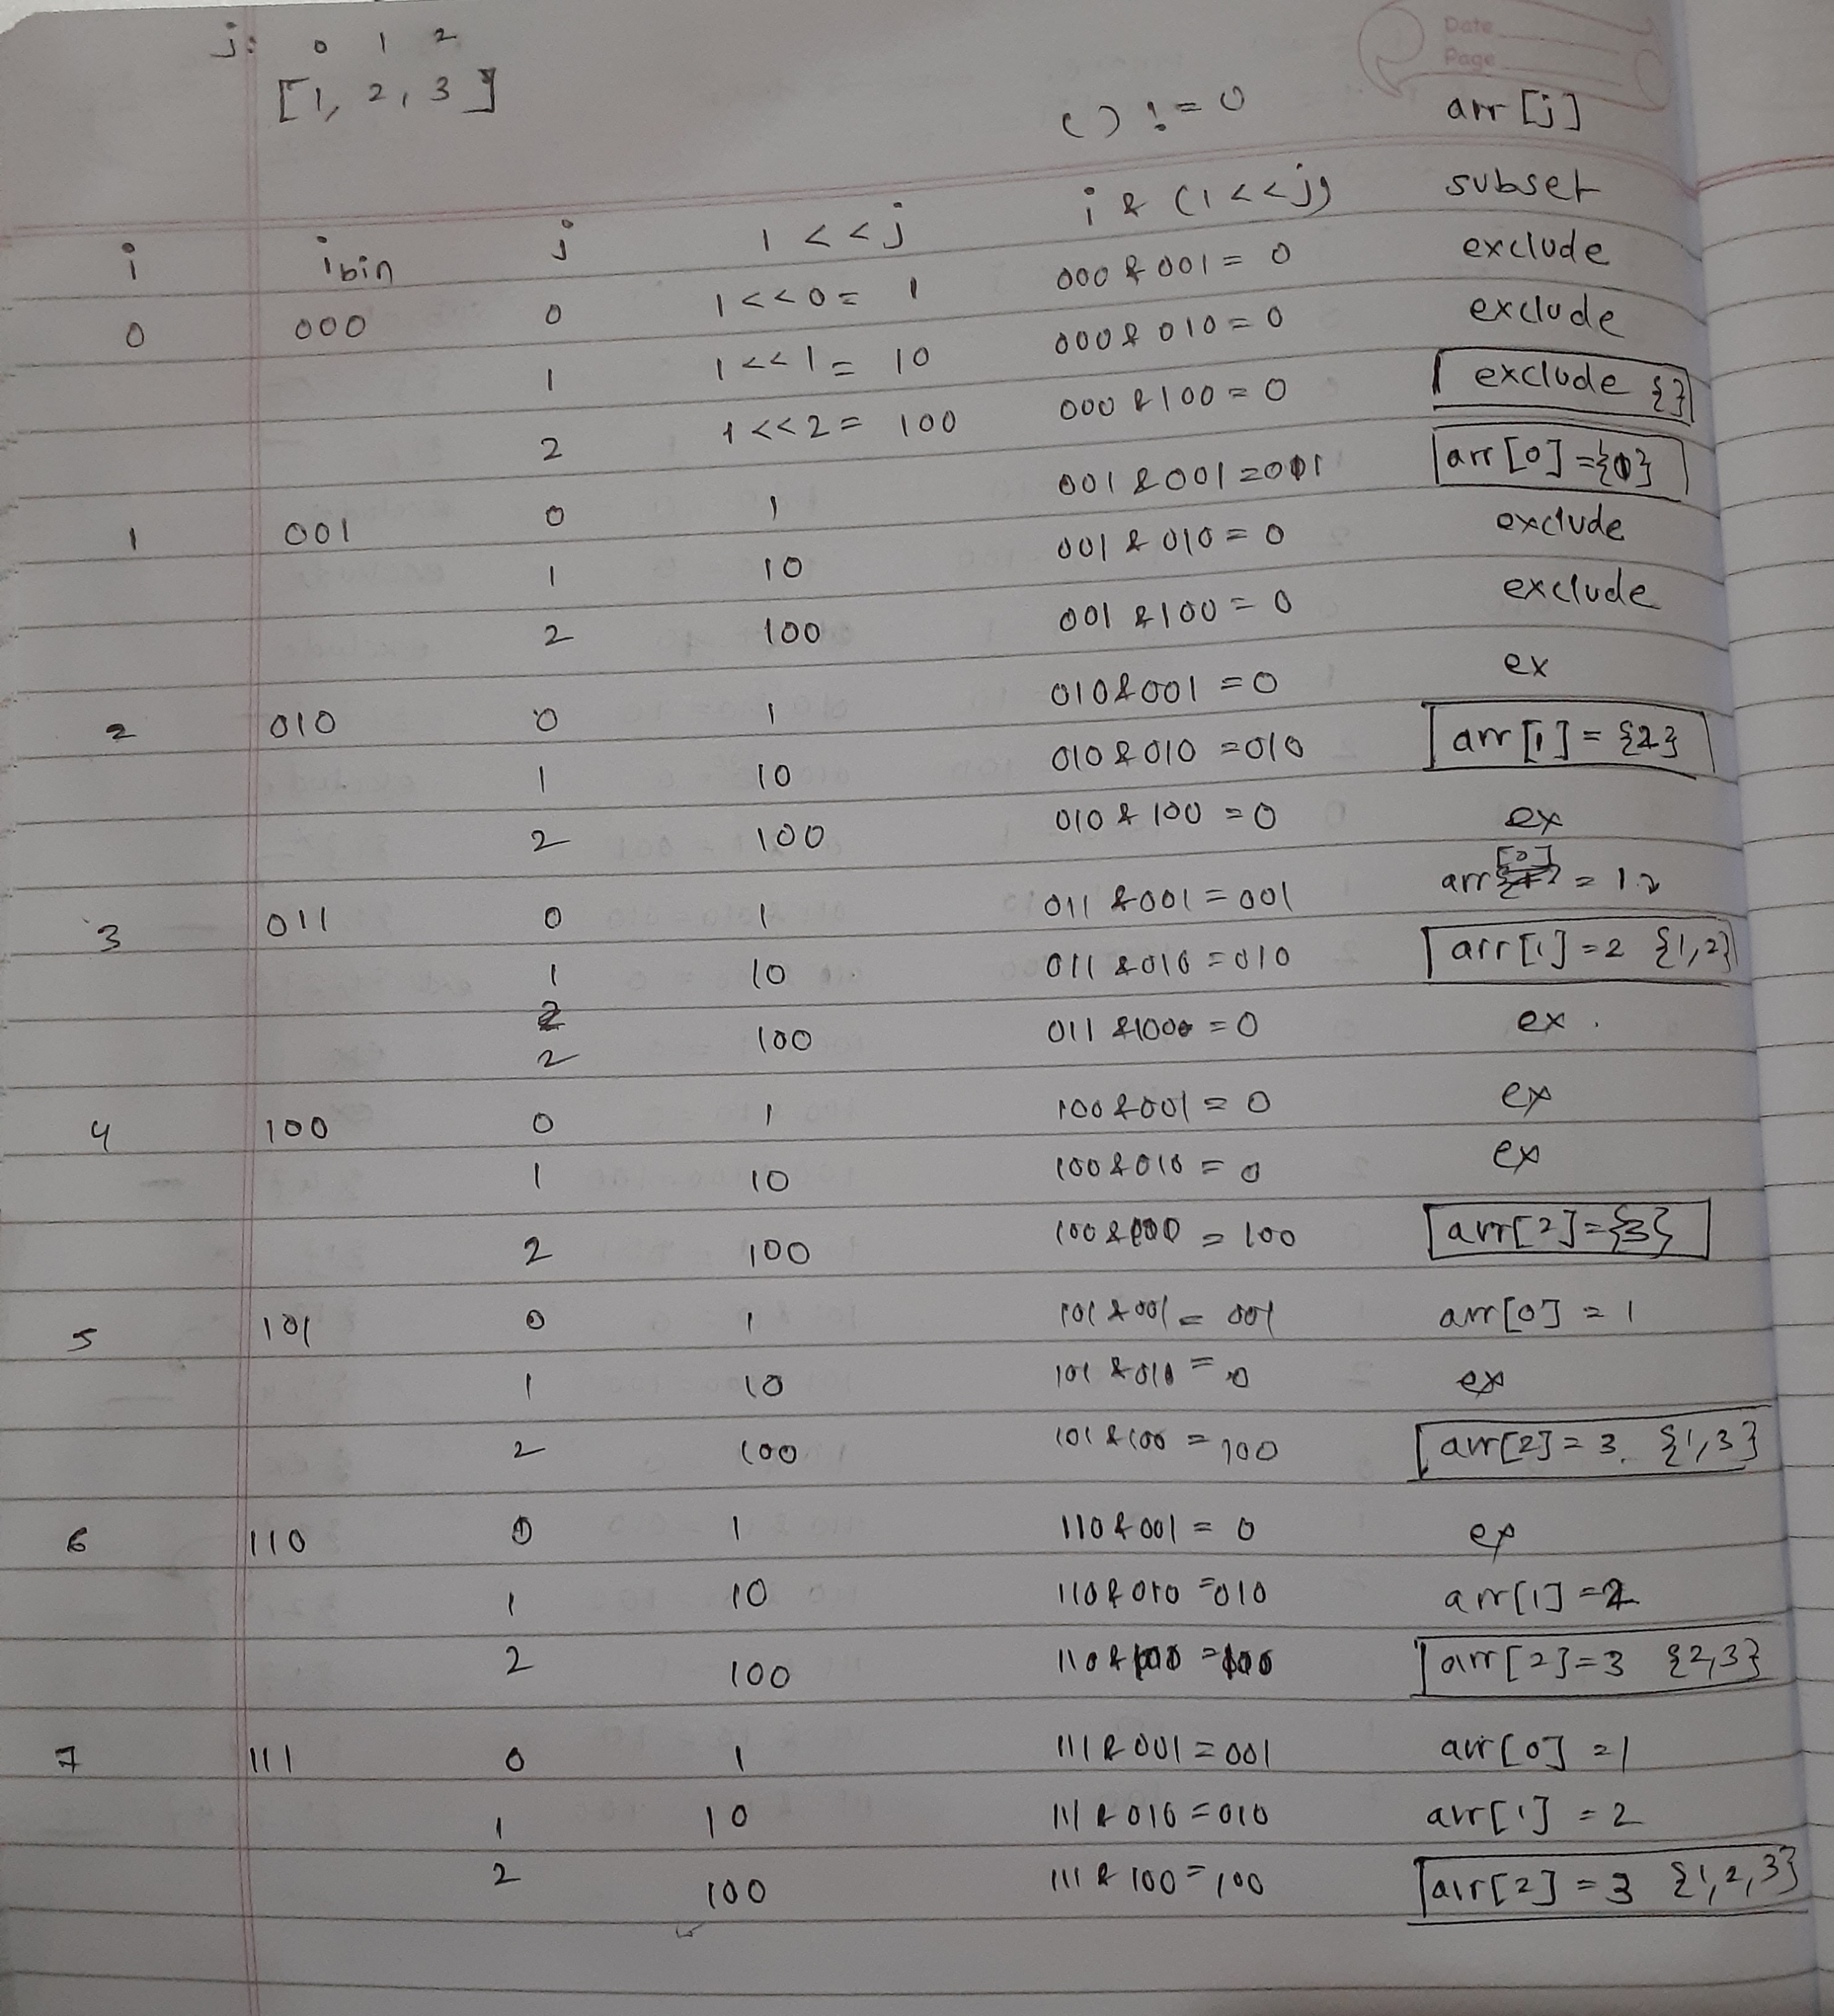 Date
Page
j: 0 1 2
[1, 2, 3]
( ) != 0 arr [j]
i i bin j 1 << j i & (1 << j) subset
0 000 0 1 << 0 = 1 000 & 001 = 0 exclude
1 1 << 1 = 10 000 & 010 = 0 exclude
2 1 << 2 = 100 000 & 100 = 0 exclude {}
1 001 0 1 001 & 001 = 001 arr [0] = {1}
1 10 001 & 010 = 0 exclude
2 100 001 & 100 = 0 exclude
2 010 0 1 010 & 001 = 0 ex
1 10 010 & 010 = 010 arr [1] = {2}
2 100 010 & 100 = 0 ex
3 011 0 1 011 & 001 = 001 arr [0] = 1
1 10 011 & 010 = 010 arr [1] = 2 {1,2}
2 100 011 & 100 = 0 ex
4 100 0 1 100 & 001 = 0 ex
1 10 100 & 010 = 0 ex
2 100 100 & 100 = 100 arr[2] = {3}
5 101 0 1 101 & 001 = 001 arr[0] = 1
1 10 101 & 010 = 0 ex
2 100 101 & 100 = 100 arr[2] = 3 {1,3}
6 110 0 1 110 & 001 = 0 ex
1 10 110 & 010 = 010 arr[1] = 2
2 100 110 & 100 = 100 arr[2] = 3 {2,3}
7 111 0 1 111 & 001 = 001 arr[0] = 1
1 10 111 & 010 = 010 arr[1] = 2
2 100 111 & 100 = 100 arr[2] = 3 {1,2,3}